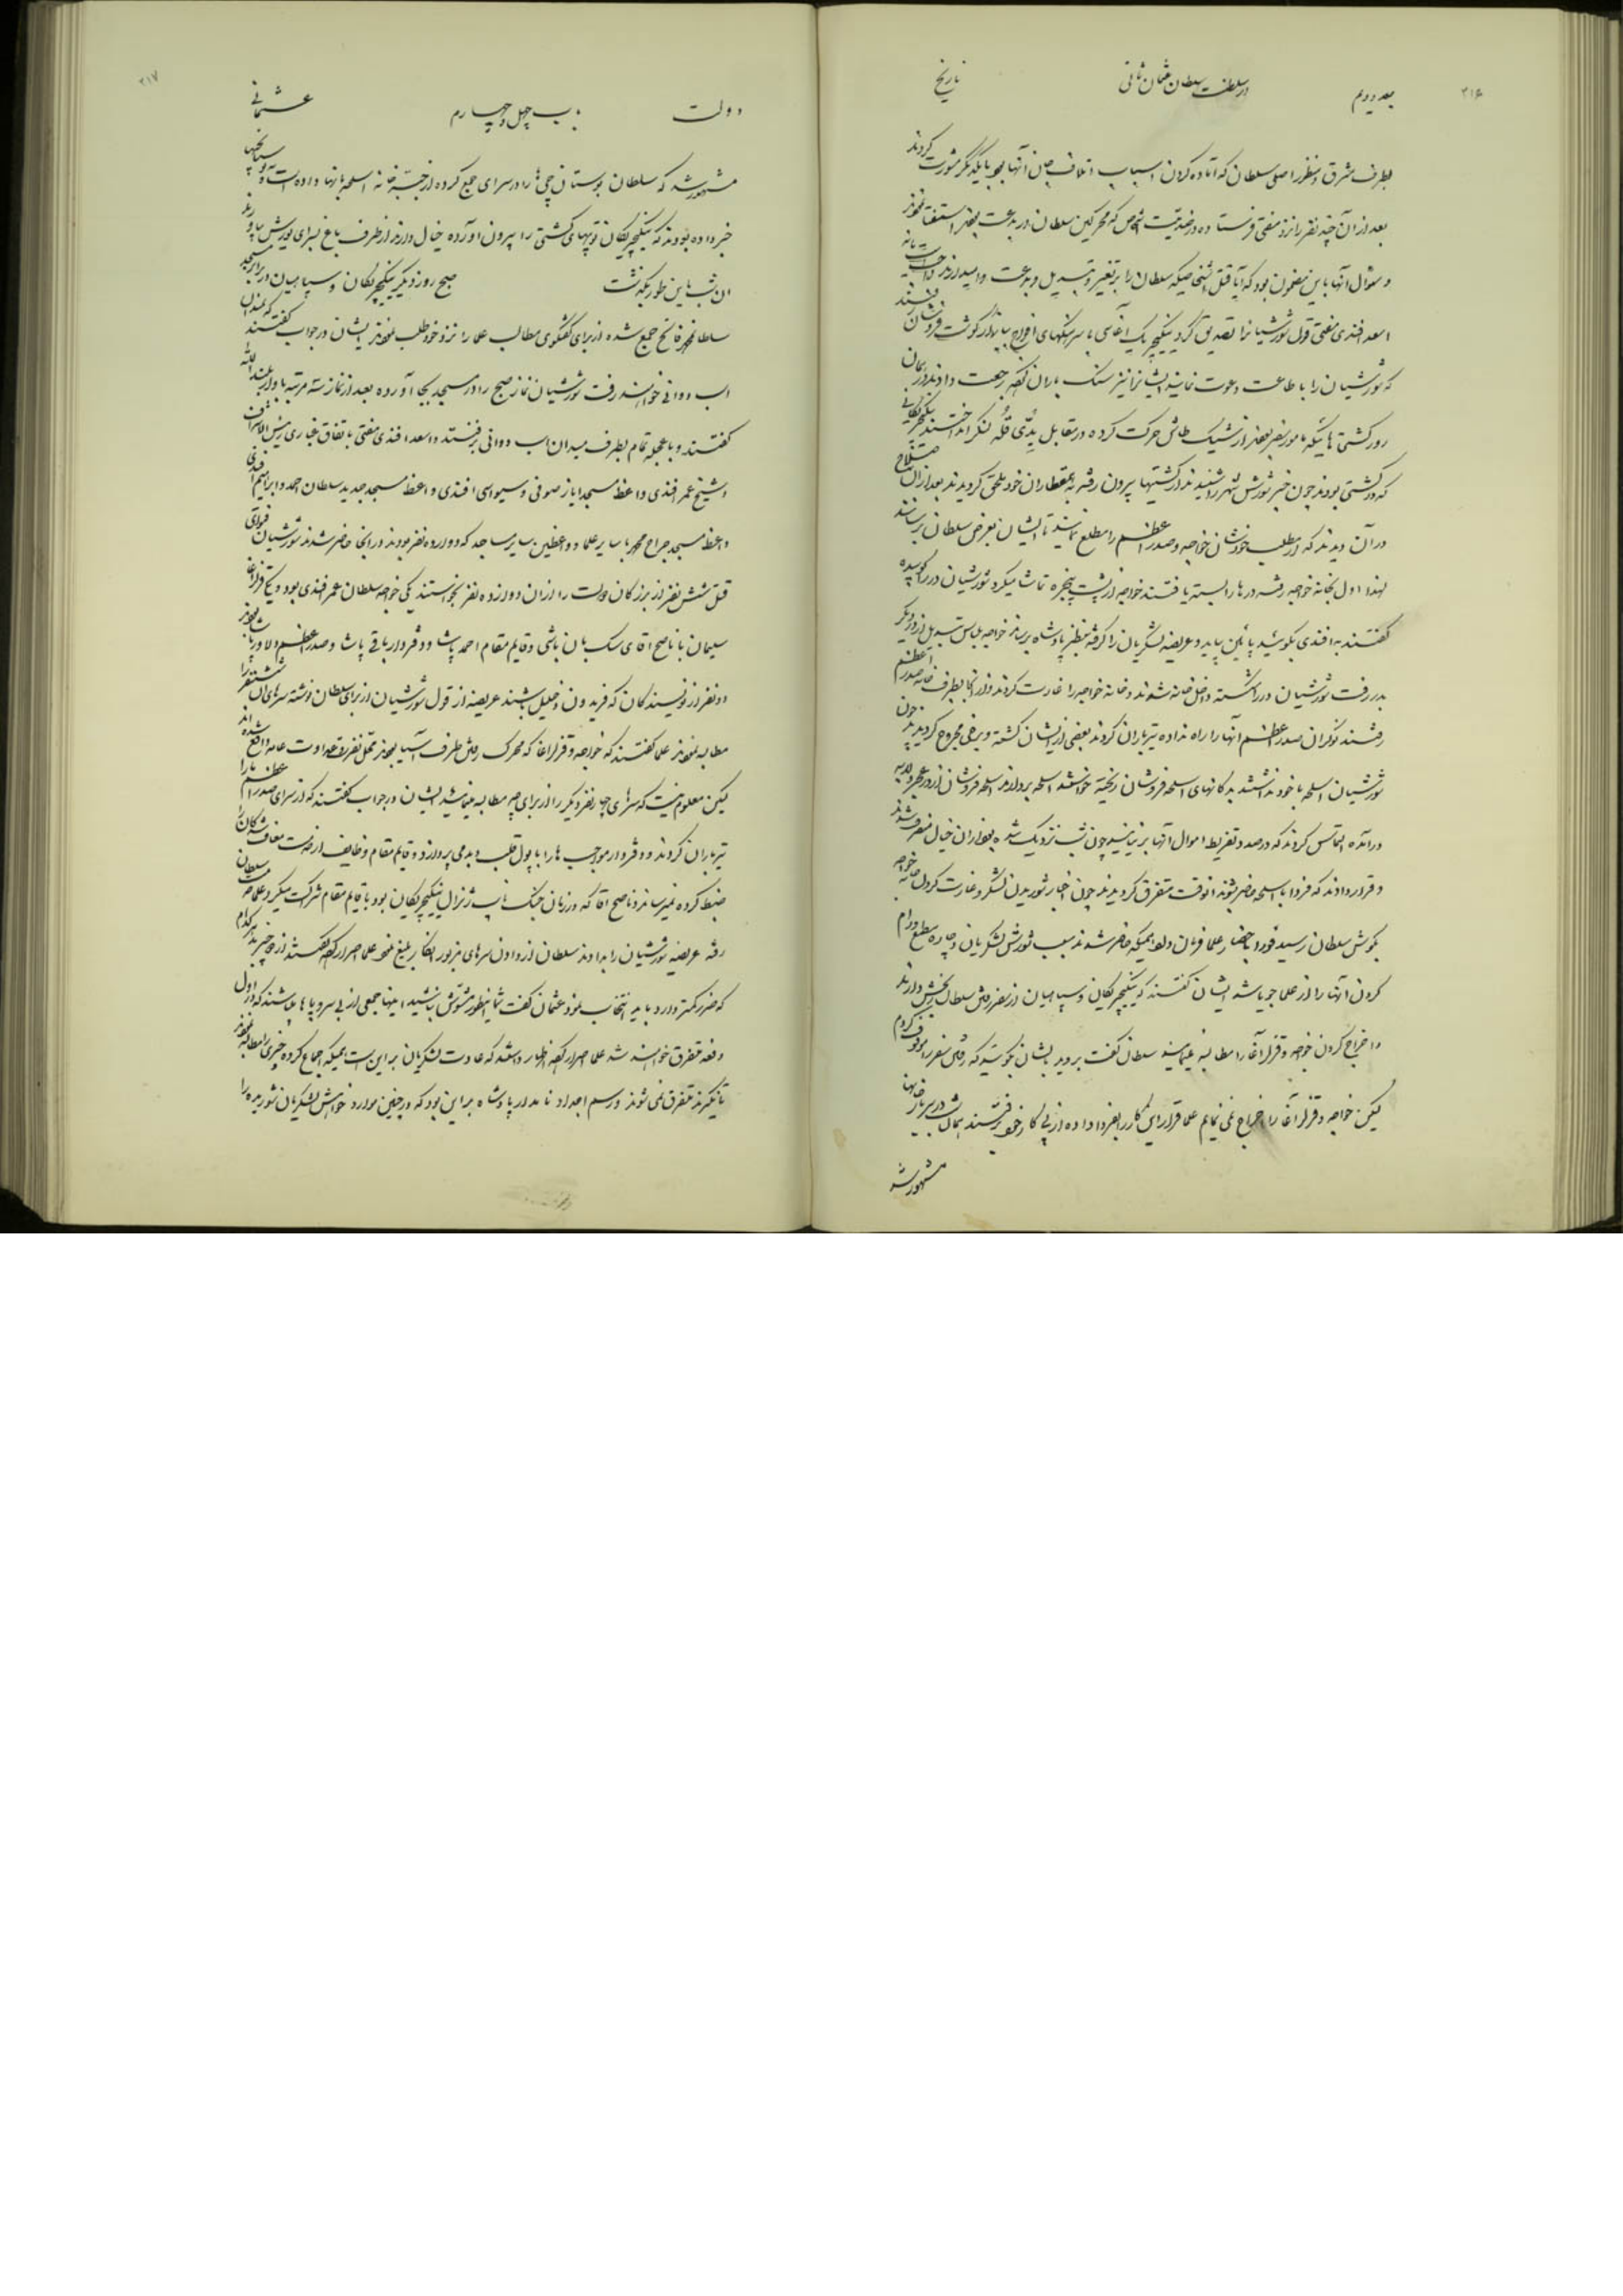 ۳۱۶
جلد دویم
در سلطنت سلطان عثمان ثانی
تاریخ
بطرف مشرق و منظور اصلی سلطان که آماده کردن اسباب اتلاف جان آنها بود با یکدیگر مشورت کردند
بعد از آن چند نفر را نزد مفتی فرستاده در ضدیت اشخاص که محرکین سلطان در بدعت بودند استفتا نمودند
و سئوال آنها باین مضمون بود که آیا قتل اشخاصیکه سلطان را بر تغییر و تبدیل و بدعت وامیدارند واجبست یا نه
اسعد افندی مفتی قول شورشیان را تصدیق کرد ینکیچریک آغاسی با سرهنگهای افواج ببازار گوشت فروشان رفتند
که شورشیان را باطاعت دعوت نمایند ایشانرا نیز سنگ باران کرده رجعت دادند در همان
روز کشتی هائیکه مامور سفر بودند از شیک طاش حرکت کرده در مقابل یدی قله لنگر انداختند ینکیچریکانی
که در کشتی بودند چون خبر شورش شهر را شنیدند از کشتیها بیرون رفته به همقطاران خود ملحق گردیدند بعد از آن صلاح
در آن دیدند که از مطلب خودشان خواجه و صدر اعظم را مطلع نمایند تا ایشان بعرض سلطان برسانند
لهذا اول بخانه خواجه رفته درها را بسته یافتند خواجه از پشت پنجره تماشا میکرد شورشیان در را کوبیده
گفتند به افندی بگوئید پائین بیاید و عریضه لشکریان را گرفته بنظر پادشاه برساند خواجه لباس تبدیل از در دیگر
بدر رفت شورشیان در را شکسته داخل خانه شوند و خانه خواجه را غارت کردند و از آنجا بطرف خانه صدر اعظم
رفتند نوکران صدر اعظم آنها را راه نداده تیرباران کردند بعضی از ایشان کشته و برخی مجروح گردیدند چون
شورشیان اسلحه با خود نداشتند بدکانهای اسلحه فروشان ریخته خواستند اسلحه بردارند اسلحه فروشان از در عجز و لابه
درآمده التماس کردند که درصدد تفریط اموال آنها بر نیایند چون شب نزدیک شده بود از آن خیال منصرف شدند
و قرار دادند که فردا با اسلحه حاضر شوند آنوقت متفرق گردیدند چون اخبار شوریدن لشکر و غارت کردن خانه خواجه
بگوش سلطان رسید فورا باحضار علما فرمان داد همینکه حاضر شدند سبب شورش لشکریان و چاره ساکت و آرام
کردن آنها را از علما جویا شد ایشان گفتند که ینکیچریکان و سپاهیان از سفر رفتن سلطان رنجش دارند
و اخراج کردن خواجه و قزلر آغا را مطالبه مینمایند سلطان گفت بروید بایشان بگوئید که رفتن سفر را موقوف کردم
لیکن خواجه و قزلر آغا را اخراج نمی نمایم علما قرار این کار را بفردا داده از پی کار خود رفتند همان شب در سربازخانها
مشهور شد
۳۱۷
دولت
باب چهل و چهارم
عثمانی
مشهور شد که سلطان بوستان چی ها را در سرای جمع کرده از جبه خانه اسلحه بانها داده است و توپچیها
خبر داده بودند که ینکیچریکان توپهای کشتی را بیرون آورده خیال دارند از طرف باغ بسرای یورش بیاورند
آن شب باین طور بگذشت صبح روز دیگر ینکیچریکان و سپاهیان در برابر مسجد
سلطان محمد فاتح جمع شده از برای گفتگوی مطالب علما را نزد خود طلب نمودند ایشان در جواب گفتند که بمیدان
اسب دوانی خواهند رفت شورشیان نماز صبح را در مسجد بجا آورده بعد از نماز سه مرتبه باواز بلند الله
گفتند و با عجله تمام بطرف میدان اسب دوانی برفتند و اسعد افندی مفتی باتفاق غباری رئیس الاشراف
و شیخ عمر افندی واعظ مسجد ایاز صوفی و سیواسی افندی واعظ مسجد جدید سلطان احمد و ابراهیم افندی
واعظ مسجد جراح محمد با سایر علما و واعظین سایر مساجد که دوازده نفر بودند در انجا حاضر شدند شورشیان فتوای
قتل شش نفر از بزرگان دولت را از آن دوازده نفر بخواستند یکی خواجه سلطان عمر افندی بود دویم قزلر آغا
سلیمان با ناصح آقای سک بان باشی و قایم مقام احمد پاشا و دفتردار باقی پاشا و صدر اعظم دلاور پاشا بودند
دو نفر از نویسندگان که فریدون و خلیل باشند عریضه از قول شورشیان از برای سلطان نوشته سرهای آن شش نفر را
مطالبه نمودند علما گفتند که خواجه و قزلر آغا که محرک رفتن طرف آسیا بودند محل نفرت و عداوت عامه واقع شده اند
لیکن معلوم نیست که سرهای چهار نفر دیگر را از برای چه مطالبه مینمائید ایشان در جواب گفتند که از سرای صدر اعظم ما را
تیرباران کردند و دفتردار موجب ها را با پول قلب و بد می پردازد و قایم مقام وظایف از خدمت معاف شدگان را
ضبط کرده نمیرساند و ناصح آقا که در زمان جنگ نایب ژنرال ینکیچریکان بود با قایم مقام شرکت میکرد علما خدمت سلطان
رفته عریضه شورشیان را بدادند سلطان از دادن سرهای مزبور انکار بلیغ نمود علما اصرار کرده گفتند از دو چیز هر کدام
که ضرر کمتر دارد باید انتخاب نمود عثمان گفت شما اینطور مشوش نباشید اینها جمعی از بی سر و پا ها باشند که در اول
دفعه متفرق خواهند شد علما اصرار کرده اظهار داشتند که عادت لشکریان بر این است همینکه اجماع کرده چیزی را مطالبه نمودند
تا نگیرند متفرق نمی شوند و رسم اجداد نامدار پادشاه بر این بود که در چنین موارد خواهش لشکریان شوریده را